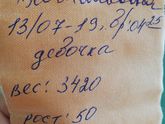 13/07-19, 04²⁵
девочка
вес: 3420
рост: 50